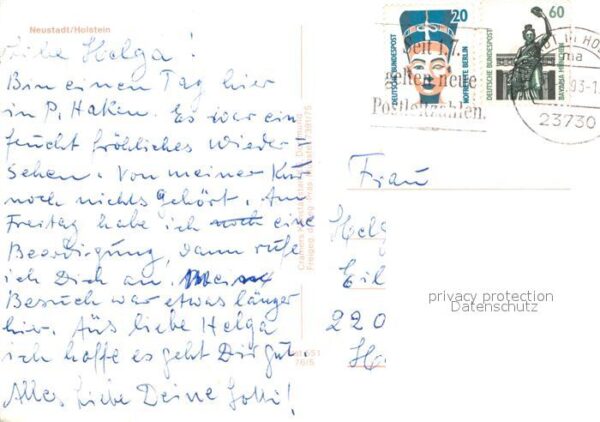 Neustadt/Holstein
Liebe Helga!
Bin einen Tag hier
in P. Haken. Es war ein
feucht fröhliches Wieder=
sehen. Von meiner Kur
noch nichts gehört. Am
Freitag habe ich noch eine
Beerdigung, dann rufe
ich Dich an. Mein
Besuch war etwas länger
hier. Tüs liebe Helga
ich hoffe es geht Dir gut.
Alles Liebe Deine Lotti!
20
DEUTSCHE BUNDESPOST
NOFRETETE BERLIN
60
DEUTSCHE BUNDESPOST
BAVARIA MÜNCHEN
Seit 1.7.
gelten neue
Postleitzahlen.
ma
93-1
23730
Frau
Helg
Eil
220
privacy protection
Datenschutz